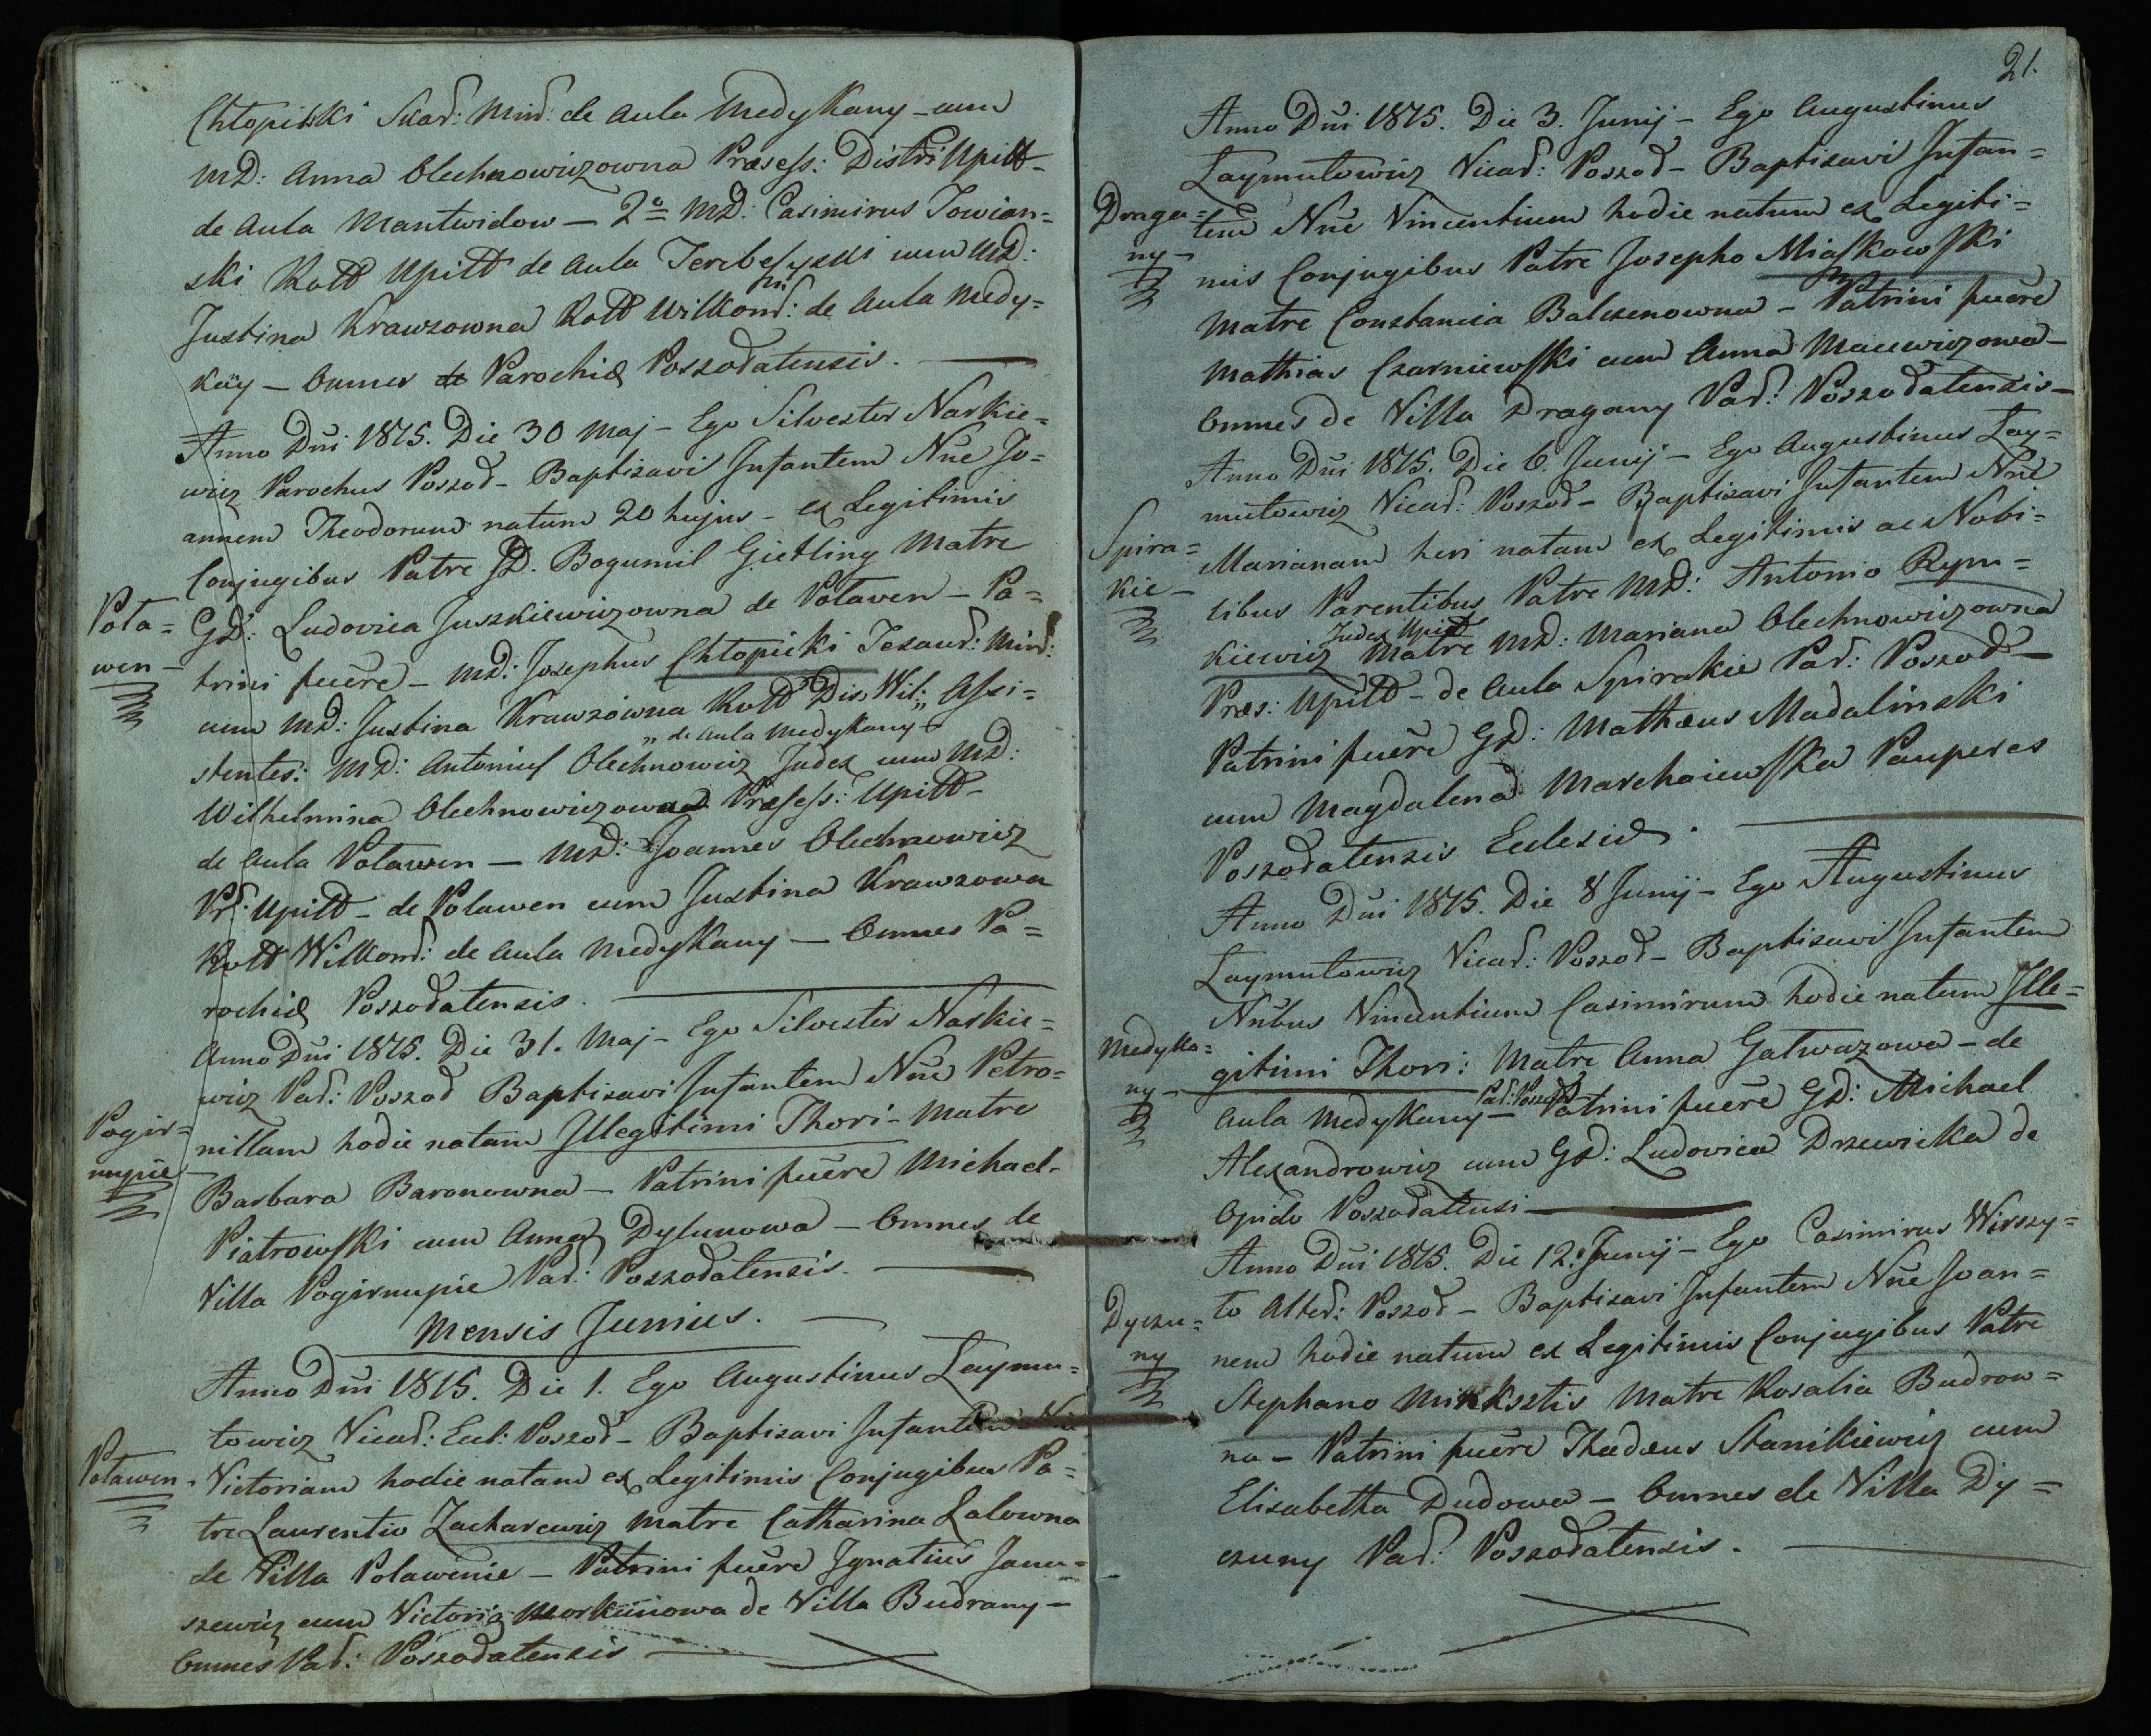 Chłopicki Skar: Mind: de aula Medykany - cum
MD: Anna Olechnowiczowna Præsess: Distri Upitt-
de aula Mantwidow - 2º MD: Casimirus Towian=
ski Rott Upitt de aula Terebeszyszki cum MD:
Justina Krawzowna Rott Wilkom: de Aula Medy=
kany - Omnes Parochiæ Poszodatensis.
Anno Dni 1815. Die 30 Maj - Ego Silvester Narkie=
wicz Parochus Poszod - Baptisavi Infantem Nne Jo=
annem Theodorum natum 20 hujus - ex Legitimis
Conjugibus Patre GD. Bogumil Gietling Matre
Pota=
wen -
GD: Ludovica Juszkiewiczowna de Potawen - Pa=
trini fuêre - MD: Josephus Chłopicki Tezaur: Mind:
cum MD: Justina Krawzowna Rott Dis, Wil: Assi=
„ de aula Medykany
stentes: MD: Antonius Olechnowicz Judex cum MD:
Wilhelmina Olechnowiczowna Præsess: Upitt-
de aula Potawen - MD: Joannes Olechnowicz
Pr: Upitt - de Potawen cum Justina Krawzowa
Rott Wilkom: de aula Medykany - Omnes Pa=
rochiæ Poszodatensis.
Anno Dni 1815. Die 31. Maj - Ego Silvester Narkie=
wicz Par: Poszod Baptisavi Infantem Nne Petro=
Pogir=
nupie
nillam hodie natam Illegitimi Thori - Matre
Barbara Baronowna - Patrini fuêre Michael
Piatrowski cum Anna Dylunowa - Omnes de
Villa Pogirnupie Par: Poszodatensis.
Mensis Junius.
Anno Dni 1815. Die 1. Ego Augustinus Laymu=
towicz Vicar: Eccl: Poszod - Baptisavi Infantem
Potawen -
Victoriam hodie natam ex Legitimis Conjugibus Pa=
tre Laurentio Zacharewicz Matre Catharina Lalowna
de Villa Potawenie - Patrini fuêre Ignatius Janu=
szewicz cum Victoria Morkunowa de Villa Budrany -
Omnes Par: Poszodatensis
21.
Anno Dni 1815. Die 3. Junij - Ego Augustinus
Laymutowicz Vicar: Poszod - Baptisavi Infan=
Draga=
ny -
tem Nne Vincentium hodie natum ex Legiti=
mis Conjugibus Patre Josepho Miaskowski
Matre Constancia Balczenowna - Patrini fuêre
Mathias Czarniewski cum Anna Maciewiczowa -
Omnes de Villa Dragany Par: Poszodatensis -
Anno Dni 1815. Die 6. Junij - Ego Augustinus Lay=
mutowicz Vicar: Poszod - Baptisavi Infantem Nne
Spira=
kie -
Marianam heri natam ex Legitimis ac Nobi=
libus Parentibus Patre MD: Antonio Rym=
Judex Upitt
kiewicz Matre MD: Mariana Olechnowiczowna
Præs: Upitt - de Aula Spirakie Par: Poszod -
Patrini fuêre GD: Mathæus Madalinski
cum Magdalena Marchaiewska Pauperes
Poszodatensis Eclesiæ.
Anno Dni 1815. Die 8 Junij - Ego Augustinus
Laymutowicz Vicar: Poszod - Baptisavi Infantem
Nnbus Vincentium Casimirum hodie natum Ille=
Medyka=
ny -
gitimi Thori: Matre Anna Gatwazowa - de
Par: Poszod
Aula Medykany - Patrini fuêre GD: Michael
Alexandrowicz cum GD: Ludovica Drzewicka de
Opido Poszodatensi -
Anno Dni 1815. Die 12. Junij - Ego Casimirus Wirszy=
Dyczu=
ny
to Altar: Poszod - Baptisavi Infantem Nne Joan=
nem hodie natum ex Legitimis Conjugibus Patre
Stephano Minksztis Matre Rosalia Budrow=
na - Patrini fuêre Thadæus Stanikiewicz cum
Elisabetha Dudowa - Omnes de Villa Dy=
czuny Par: Poszodatensis.